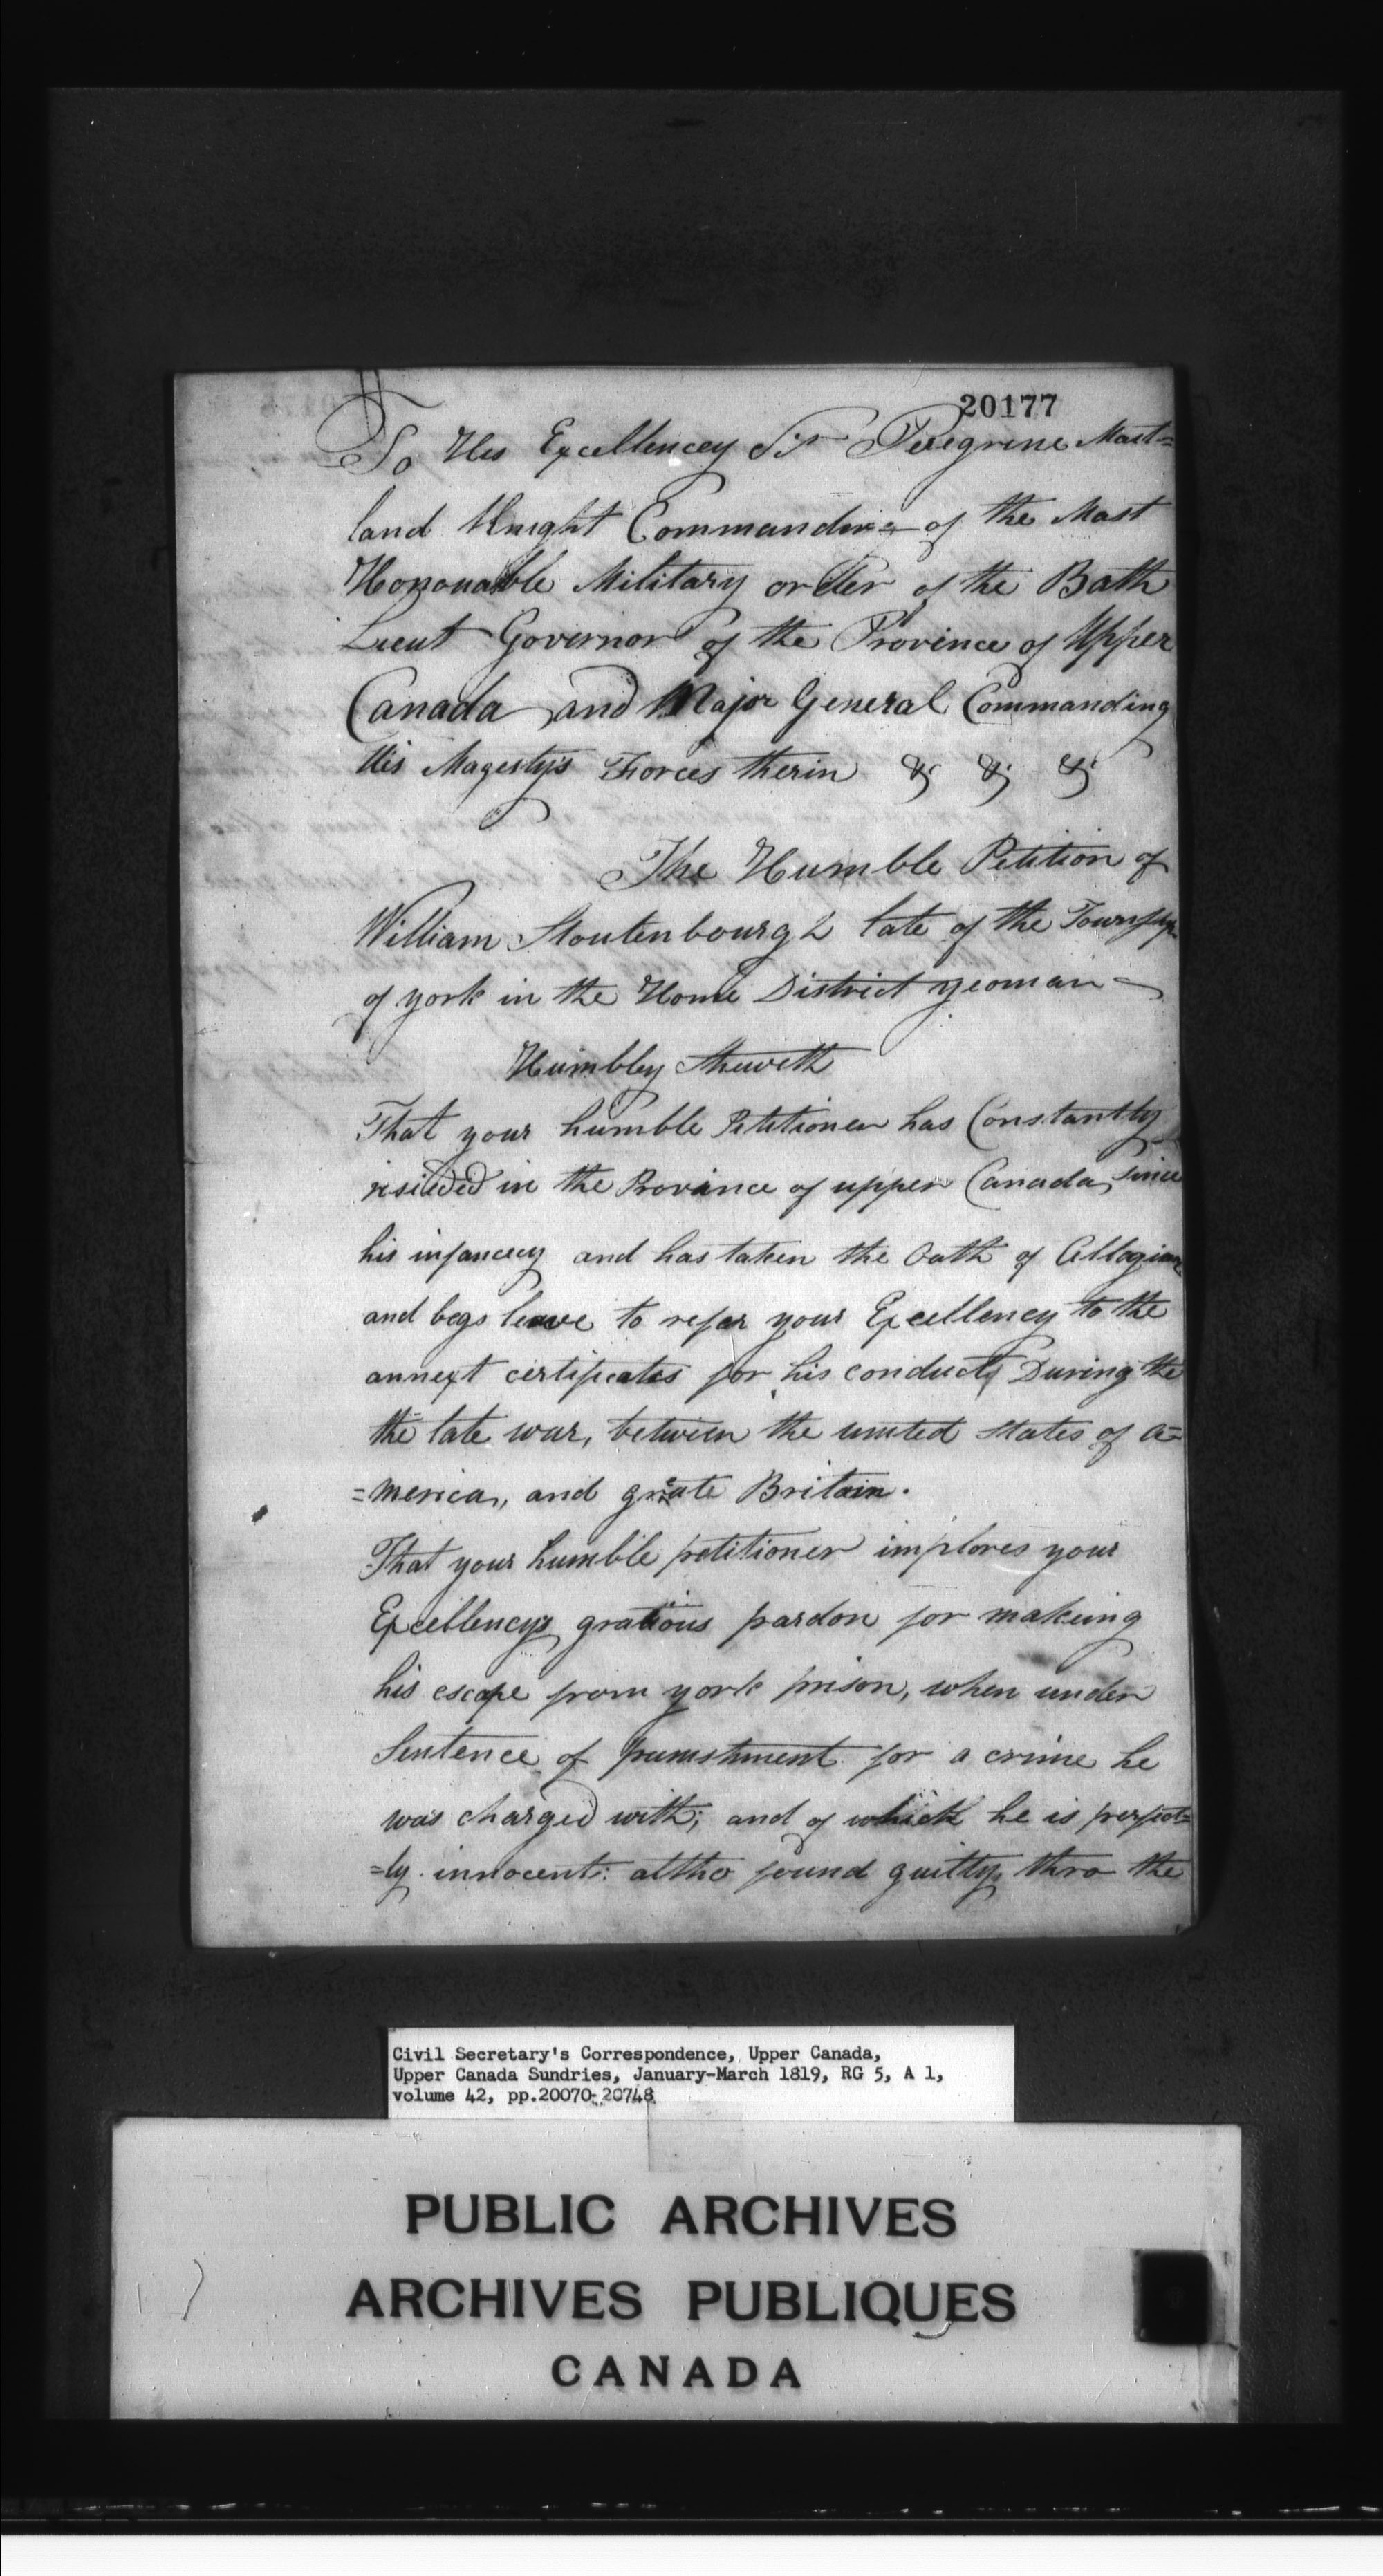 20177
To His Excellencey Sir Peregrine Mait=
land Knight Commander of the Most
Honouable Military order of the Bath
Lieut Governor of the Province of Upper
Canada and Major General Commanding
His Magestys Forces therin &c &c &c
The Humble Petition of
William Stoutenbourgh late of the Township
of york in the Home District yeoman
Humbley Sheweth
That your humble Petitioner has Constantly
resieded in the Province of upper Canada since
his infancey and has taken the Oath of Allegian
and begs leave to refer your Excellency to the
annext certificates for his conduct During the
the late war, between the united states of a=
=merica, and greate Britain.
That your humble petitioner implores your
Excellencys gratious pardon for makeing
his escape from york prison, when under
Sentence of punishment for a crime he
was charged with; and of which he is perfect=
=ly innocent: altho found guilty, thro the
Civil Secretary's Correspondence, Upper Canada,
Upper Canada Sundries, January-March 1819, RG 5, A 1,
volume 42, pp.20070-20748
PUBLIC ARCHIVES
ARCHIVES PUBLIQUES
CANADA